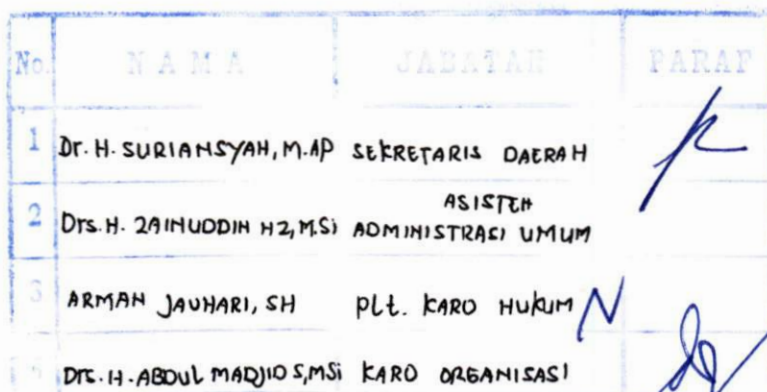 No. NAMA JABATAN PARAF
1 Dr. H. SURIANSYAH, M.AP SEKRETARIS DAERAH
2 Drs. H. ZAINUDDIN HZ, M.Si ASISTEN ADMINISTRASI UMUM
3 ARMAN JAUHARI, SH Plt. KARO HUKUM
Drs. H. ABDUL MADJID S, MSi KARO ORGANISASI